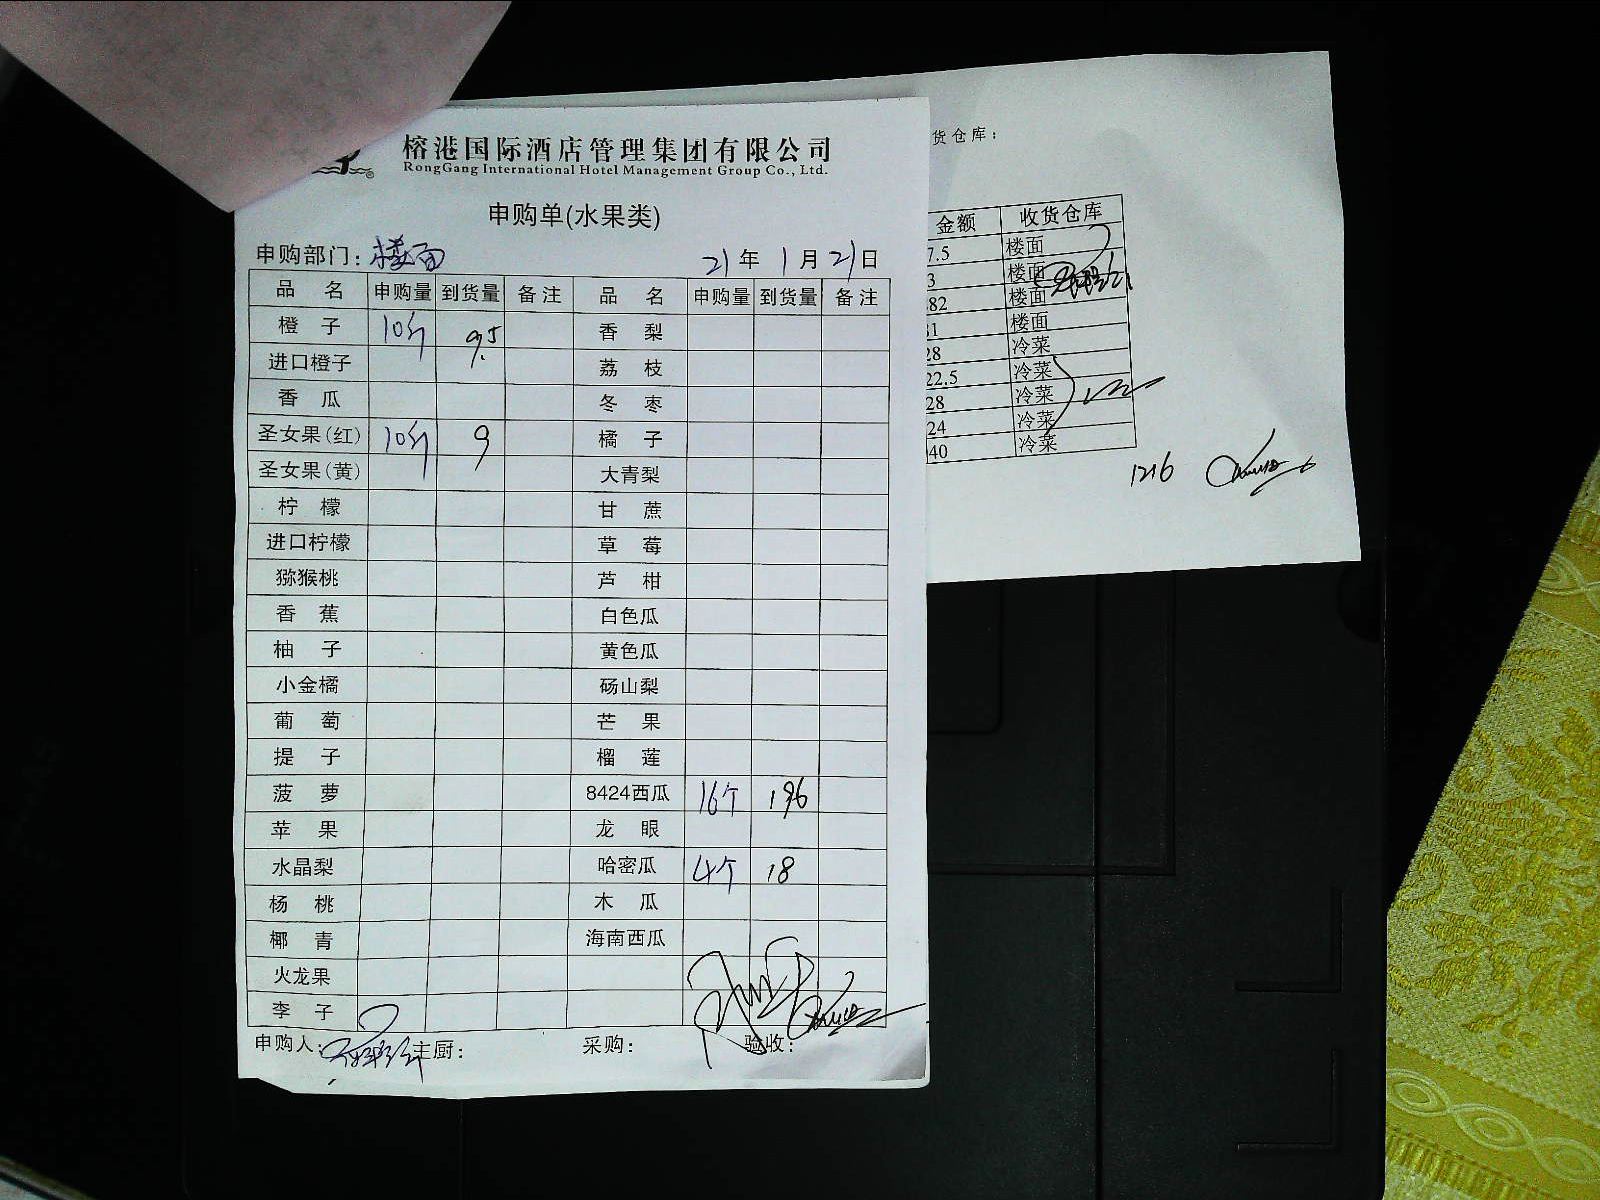 榕港国际酒店管理集团有限公司
RongGang International Hotel Management Group Co., Ltd.
申购单(水果类)
申购部门: 楼面 21年 1月 21日
品 名 申购量 到货量 备注 品 名 申购量 到货量 备注
橙 子 10斤 9.5 香 梨
进口橙子 荔 枝
香 瓜 冬 枣
圣女果(红) 10斤 9 橘 子
圣女果(黄) 大青梨
柠 檬 甘 蔗
进口柠檬 草 莓
猕猴桃 芦 柑
香 蕉 白色瓜
柚 子 黄色瓜
小金橘 砀山梨
葡 萄 芒 果
提 子 榴 莲
菠 萝 8424西瓜 16个 196
苹 果 龙 眼
水晶梨 哈密瓜 4个 18
杨 桃 木 瓜
椰 青 海南西瓜
火龙果
李 子
申购人: 主厨: 采购: 验收:
货仓库:
金额 收货仓库
7.5 楼面
3 楼面
82 楼面
31 楼面
28 冷菜
22.5 冷菜
28 冷菜
24 冷菜
040 冷菜
1216